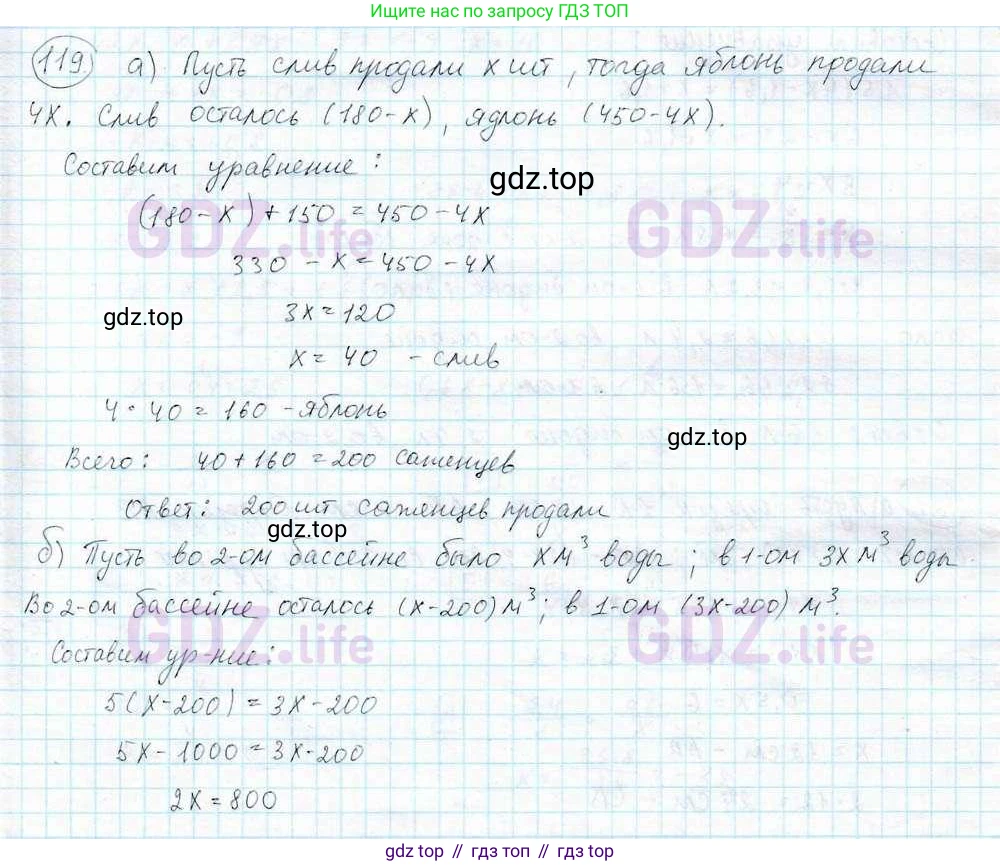 Ищите нас по запросу ГДЗ ТОП
119. а) Пусть слив продали х шт, тогда яблонь продали
4х. Слив осталось (180-х), ядлонь (450-4х).
Составим уравнение:
gdz.top
(180-х)+150=450-4х
GDZ.life GDZ.life
330-х=450-4х
gdz.top
3х=120
х=40 - слив
4·40=160 - яблонь
gdz.top
Всего: 40+160=200 саженцев
Ответ: 200 шт саженцев продали
gdz.top
б) Пусть во 2-ом бассейне было хм³ воды; в 1-ом 3х м³ воды
Во 2-ом бассейне осталось (х-200)м³; в 1-ом (3х-200) м³.
GDZ.life GDZ.life
Составим ур-ние:
5(х-200)=3х-200
5х-1000=3х-200
2х=800
gdz.top // gdz.top // gdz.top